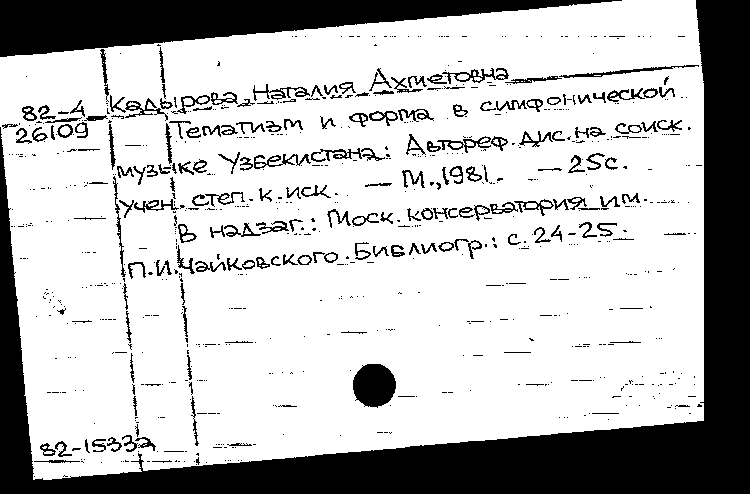 82-4 Кадырова, Наталия Ахметовна
26109 Тематизм и форма в симфонической
музыке Узбекистана: Автореф. дис. на соиск.
учен. степ. к. иск. — М., 1981. — 25с.
В надзаг.: Моск. консерватория им.
П.И. Чайковского. Библиогр.: с. 24-25.
82-15332